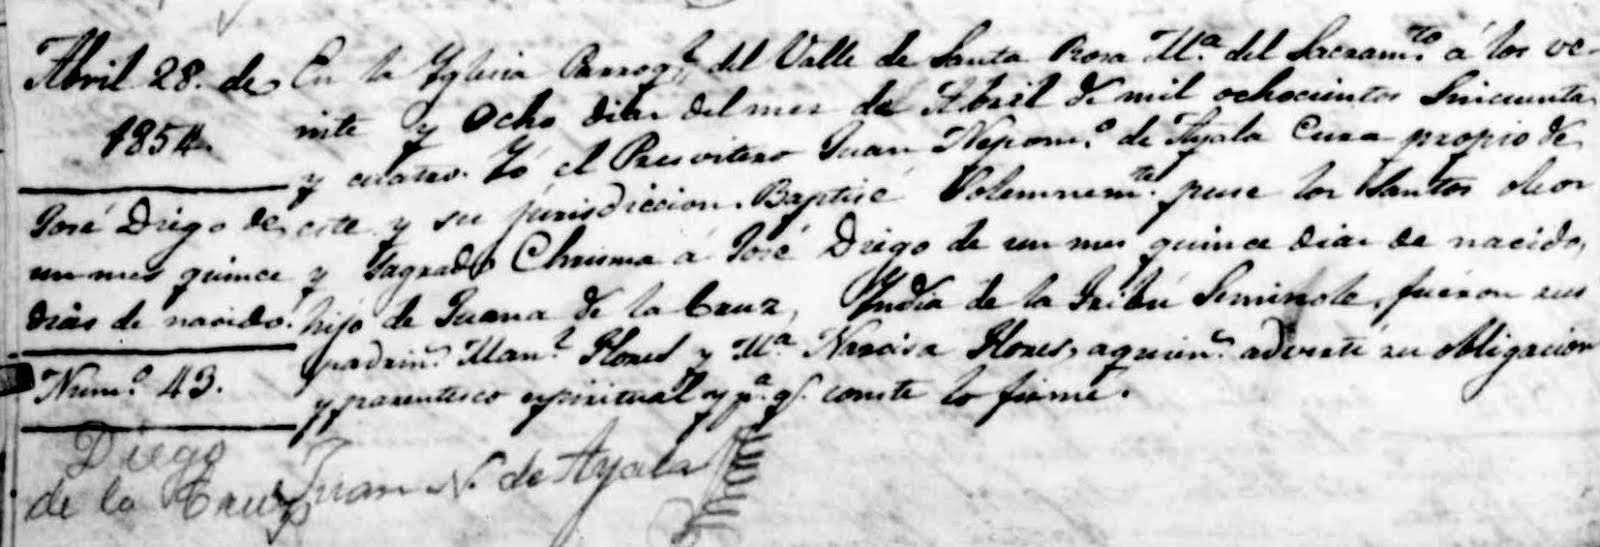 Abril 28. de
1854.
José Diego de
un mes quince
dias de nacido.
Num.º 43.
En la Yglesia Parroq.l del Valle de Santa Rosa M.a del Sacram.to á los ve-
inte y Ocho dias del mes de Abril de mil ochocientos Sincuenta
y cuatro. Yó el Presvitero Juan Nepom.º de Ayala Cura propio de
este y su jurisdiccion. Baptisé Solemnem.te puse los Santos oleos
y Sagrado Chrisma á José Diego de un mes quince dias de nacido,
hijo de Juana de la Cruz, Yndia de la Tribú Seminole, fueron sus
padrin.s Man.l Flores y M.a Narcisa Flores, aquien.s advertí su obligacion
y parentesco espiritual y p.a q.e conste lo firmé.
Juan N. de Ayala
Diego
de la Cruz